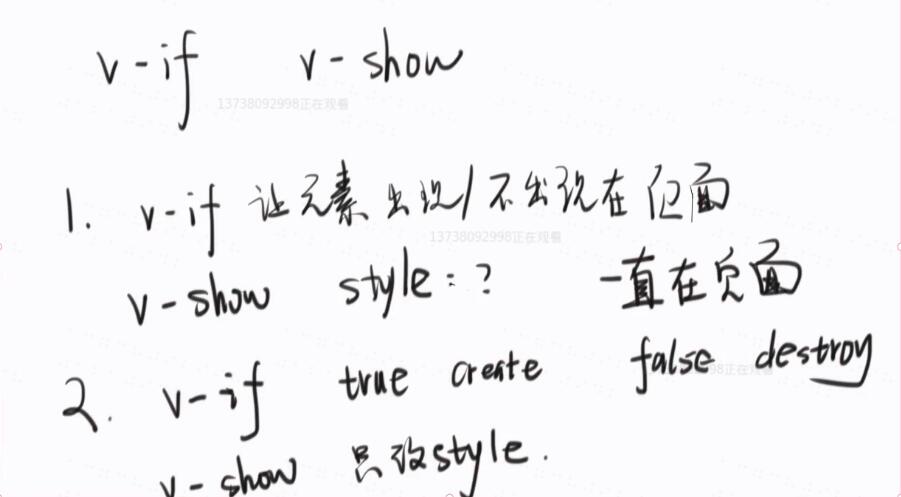 v-if v-show
13738092998正在观看
1. v-if 让元素出现/不出现在页面
13738092998正在观看
v-show style:? 一直在页面
2. v-if true create false destroy
98正在观看
v-show 只改style.